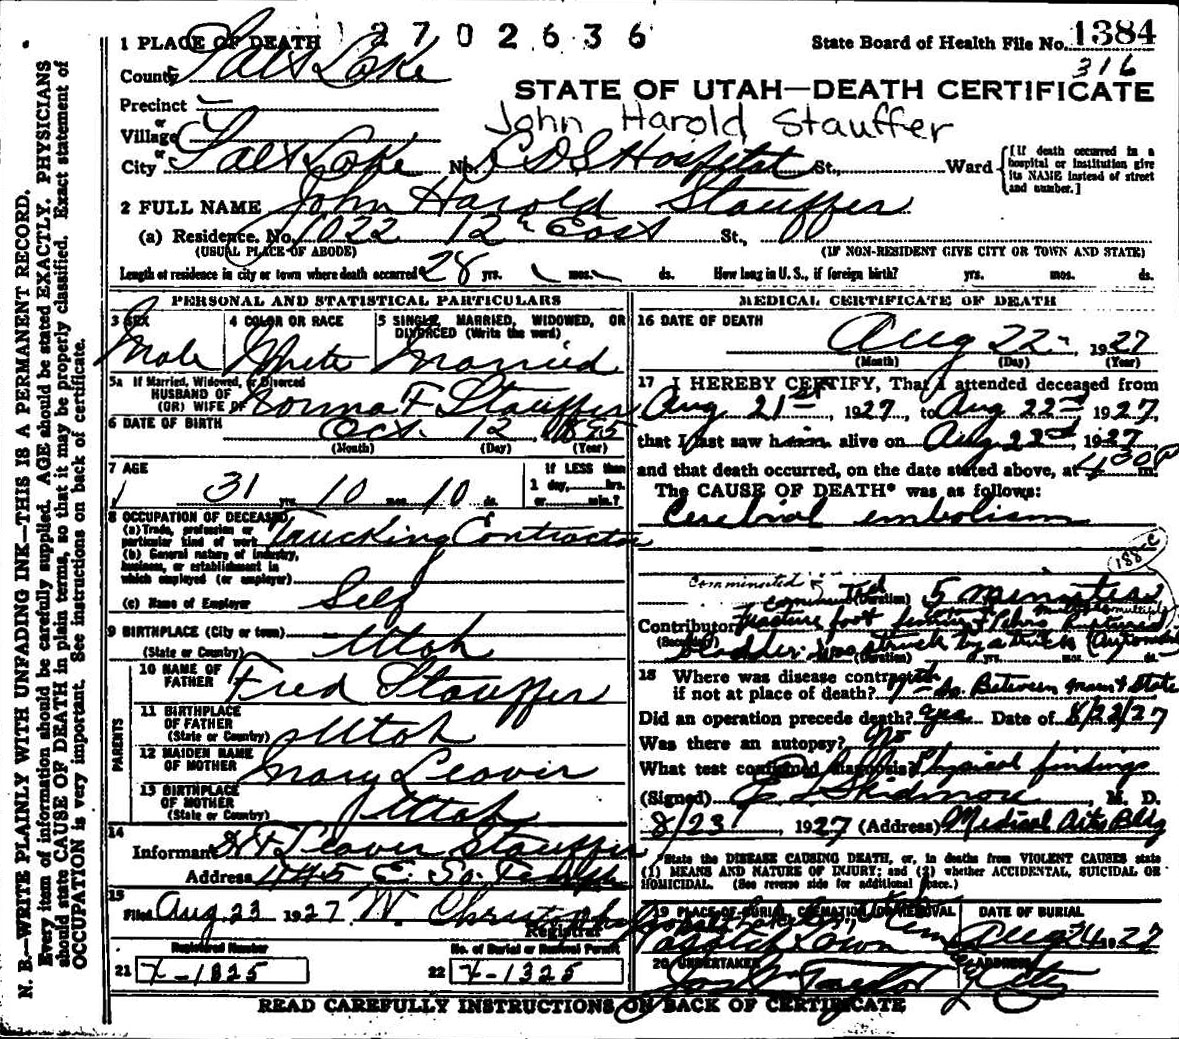 1 PLACE OF DEATH 1 2 7 0 2 6 3 6
State Board of Health File No. 1384
316
County Salt Lake
STATE OF UTAH—DEATH CERTIFICATE
Precinct
or
Village
John Harold Stauffer
or
City Salt Lake No. L D S Hospital St., Ward
[If death occurred in a hospital or institution give its NAME instead of street and number.]
2 FULL NAME John Harold Stauffer
(a) Residence. No. 1022 12th East St.,
(USUAL PLACE OF ABODE) (IF NON-RESIDENT GIVE CITY OR TOWN AND STATE)
Length of residence in city or town where death occurred 28 yrs. mos. ds. How long in U. S., if foreign birth? yrs. mos. ds.
PERSONAL AND STATISTICAL PARTICULARS
3 SEX 4 COLOR OR RACE 5 SINGLE, MARRIED, WIDOWED, OR DIVORCED (Write the word)
Male White Married
5a If Married, Widowed, or Divorced
HUSBAND OF
(OR) WIFE OF Norma F Stauffer
6 DATE OF BIRTH Oct. 12 1895
(Month) (Day) (Year)
7 AGE If LESS than
1 day, hrs.
31 yrs. 10 mos. 10 ds. or min.?
8 OCCUPATION OF DECEASED
(a) Trade, profession or
particular kind of work Trucking Contractor
(b) General nature of industry,
business, or establishment in
which employed (or employer)
(c) Name of Employer Self
9 BIRTHPLACE (City or town)
(State or Country) Utah
PARENTS
10 NAME OF
FATHER Fred Stauffer
11 BIRTHPLACE
OF FATHER
(State or Country) Utah
12 MAIDEN NAME
OF MOTHER Mary Leaver
13 BIRTHPLACE
OF MOTHER
(State or Country) Utah
14
Informant Leaver Stauffer
Address 445 E. So. Temple
15
Filed Aug 23 1927 W. Christopherson
Registrar
Registered Number No. of Burial or Removal Permit
21 X-1325 22 X-1325
MEDICAL CERTIFICATE OF DEATH
16 DATE OF DEATH
Aug 22 1927
(Month) (Day) (Year)
17 I HEREBY CERTIFY, That I attended deceased from
Aug 21st, 1927, to Aug 22nd 1927,
that I last saw him alive on Aug 22nd, 1927
and that death occurred, on the date stated above, at 4 30 P m.
The CAUSE OF DEATH* was as follows:
Cerebral embolism
188 c
Comminuted
(Duration) 5 minutes
Contributory Fracture foot femur + Pelvis multiple Ruptured
(Secondary) Bladder. Was struck by a truck (Automobile)
(Duration) yrs. mos. ds.
18 Where was disease contracted
if not at place of death? So. Between Main & State
Did an operation precede death? yes Date of 8/22/27
Was there an autopsy? No
What test confirmed diagnosis? Physical findings
(Signed) Skidmore, M. D.
8/23, 1927 (Address) Medical Arts Bldg
*State the DISEASE CAUSING DEATH, or, in deaths from VIOLENT CAUSES state
(1) MEANS AND NATURE OF INJURY; and (2) whether ACCIDENTAL, SUICIDAL OR
HOMICIDAL. (See reverse side for additional space.)
19 PLACE OF BURIAL, CREMATION OR REMOVAL DATE OF BURIAL
Wasatch Lawn Aug 24 1927
20 UNDERTAKER ADDRESS
Jos. Wm Taylor City
READ CAREFULLY INSTRUCTIONS ON BACK OF CERTIFICATE
N. B.—WRITE PLAINLY WITH UNFADING INK—THIS IS A PERMANENT RECORD.
Every item of information should be carefully supplied. AGE should be stated EXACTLY. PHYSICIANS
should state CAUSE OF DEATH in plain terms, so that it may be properly classified. Exact statement of
OCCUPATION is very important. See instructions on back of certificate.